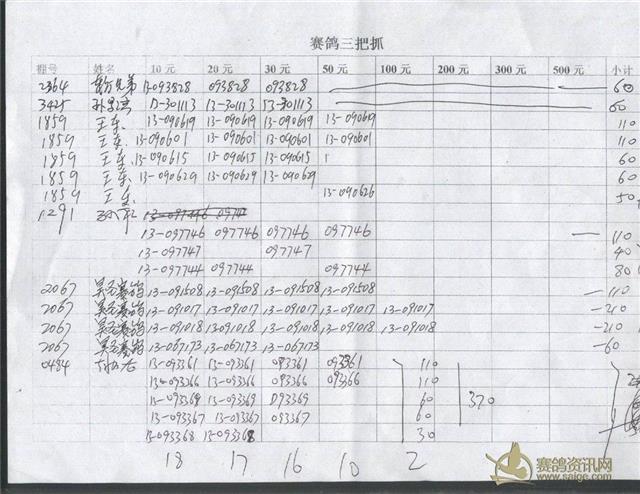 赛鸽三把抓
棚号 姓名 10元 20元 30元 50元 100元 200元 300元 500元 小计
2364 兄弟 13-093828 093828 093828 60
3425 孙 13-301113 13-301113 13-301113 60
1859 王东 13-090619 13-090619 13-090619 13-090619 110
1859 王东 13-090601 13-090601 13-090601 13-090601 110
1859 王东 13-090615 13-090615 13-090615 60
1859 王东 13-090629 13-090629 13-090629 60
1859 王东 13-090626 50
1291 13-097746 09774
13-097746 097746 097746 097746 110
13-097747 097747 40
13-097744 097744 097744 80
2067 赛鸽 13-091508 13-091508 13-091508 13-091508 110
2067 赛鸽 13-091017 13-091017 13-091017 13-091017 13-091017 210
2067 赛鸽 13-091018 13-091018 13-091018 13-091018 13-091018 210
2067 赛鸽 13-067173 13-067173 13-067173 60
0484 13-093361 13-093361 093361 093361 110
13-093366 13-093366 093366 093366 110
13-093369 13-093369 093369 60 370
13-093367 13-093367 093367 60
13-093368 13-093368 30
18 17 16 10 2
赛鸽资讯网
www.saige.com